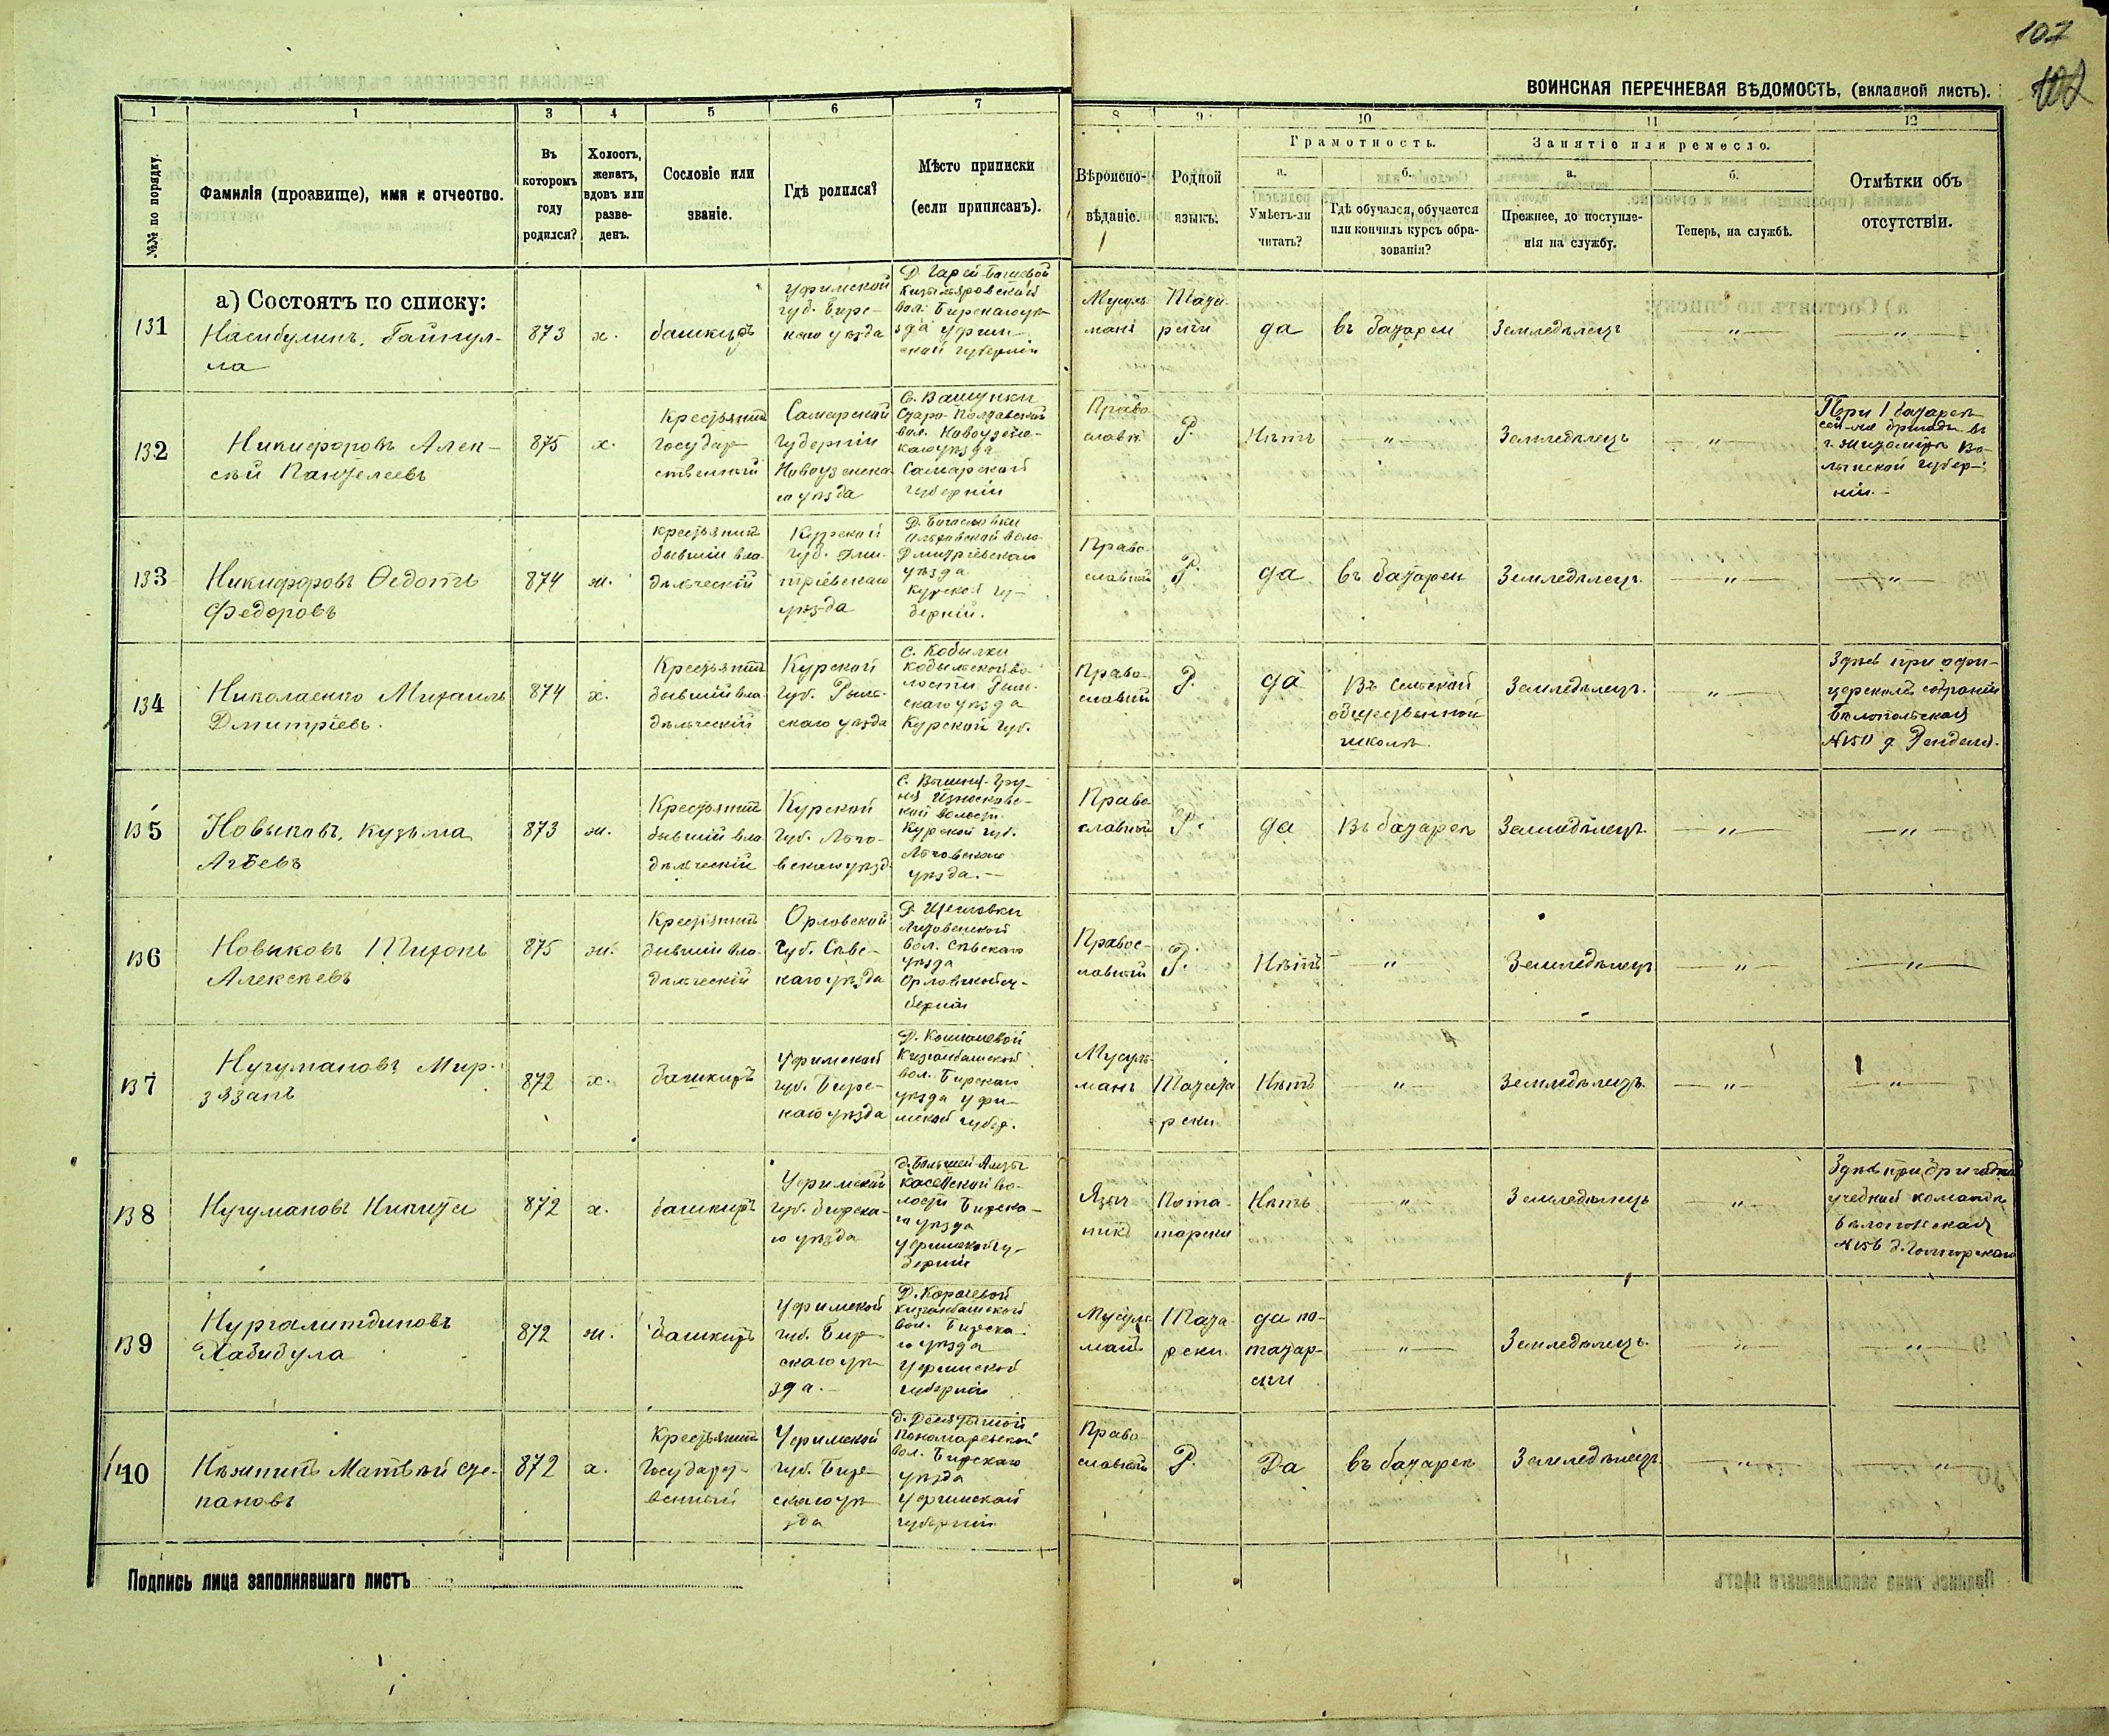 107
ВОИНСКАЯ ПЕРЕЧНЕВАЯ ВѢДОМОСТЬ, (вкладной листъ).
1 1 3 4 5 6 7 8 9 10 11 12
№№ по порядку.
Фамилія (прозвище), имя и отчество.
Въ которомъ году родился?
Холостъ, женатъ, вдовъ или разве-денъ.
Сословіе или званіе.
Гдѣ родился?
Мѣсто приписки (если приписанъ).
Вѣроиспо-вѣданіе.
Родной языкъ.
Грамотность.
а. Умѣетъ-ли читать?
б. Гдѣ обучался, обучается или кончилъ курсъ обра-зованія?
Занятіе или ремесло.
а. Прежнее, до поступле-нія на службу.
б. Теперь, на службѣ.
Отмѣтки объ отсутствіи.
а) Состоятъ по списку:
131 Насибулинъ, Гайнул-ла 873 х. башкиръ Уфимской губ. Бирс-каго уѣзда
вол. Бирскаго уѣ-зда Уфим-ской губерніи
Мусуль-манъ Тата-рски да въ батареи Земледѣлецъ „ „
132 Никифоровъ Алек-сѣй Пантелеевъ 875 х. Крестьянинъ государ-ственный Самарской губерніи Новоузенска-го уѣзда
Старо-Полтавской вол. Новоузенс-каго уѣзда Самарской губерніи
Право-славн. Р. Нѣтъ „ Земледѣлецъ „
При 1 батареѣ сей-же бригады въ г. Житомирѣ Во-лынской губер-ніи.
133 Никифоровъ Ѳедотъ Федоровъ 874 ж. Крестьянинъ бывшій вла-дѣльческій Курской губ. Дми-тріевскаго уѣзда
Дмитріевскаго уѣзда Курской гу-берніи.
Право-славный Р. да въ батареи Земледѣлецъ. „ „
134 Николаенко Михаилъ Дмитріевъ. 874 х. Крестьянинъ бывшій вла-дѣльческій Курской губ. Рыль-скаго уѣзда
С. Кобылки Кобыльской во-лости Рыль-скаго уѣзда Курской губ.
Право-славный Р. да Въ Сельской общественной школѣ. Земледѣлецъ. „
Здѣсь при офи-церскомъ собраніи Бѣлопольская
135 Новыковъ, Кузьма Агѣевъ 873 ж. Крестьянинъ бывшій вла-дѣльческій Курской губ. Льго-вскаго уѣзд.
Курской губ. Льговскаго уѣзда.
Право-славный Р. да Въ батареѣ Земледѣлецъ. „ „
136 Новыковъ Тихонъ Алексѣевъ 875 ж. Крестьянинъ бывшій вла-дѣльческій Орловской губ. Сѣвс-каго уѣзда
вол. Сѣвскаго уѣзда Орловской гу-берніи
Правос-лавный Р. Нѣтъ „ Земледѣлецъ „ „
137 Нугумановъ Мир-зязанъ 872 х. башкиръ Уфимской губ. Бирс-каго уѣзда
вол. Бирскаго уѣзда Уфи-мской губер.
Мусуль-манъ Татара-рски. Нѣтъ „ Земледѣлецъ. „ „
138 Нугумановъ Никита 872 х. башкиръ Уфимской губ. Бирска-го уѣзда
во-лости Бирска-го уѣзда Уфимской гу-берніи
Языч-никъ Пота-тарски Нѣтъ „ Земледѣлецъ „
Здѣсь при бригадной учебной командѣ Бѣлопольская
139 Нургалитдиновъ Хабибула 872 ж. башкиръ Уфимской губ. Бир-скаго уѣ-зда.
вол. Бирска-го уѣзда Уфимской губерніи
Мусуль-манъ Тата-рски да по-татар-ски „ Земледѣлецъ. „ „
140 Нѣжнинъ Матвѣй Сте-пановъ 872 х. Крестьянинъ Государст-венный Уфимской губ. Бир-скаго уѣ-зда
Пономаревской вол. Бирскаго уѣзда Уфимской губерніи
Право-славный Р. Да въ батареѣ Земледѣлецъ „ „
Подпись лица заполнявшаго листъ